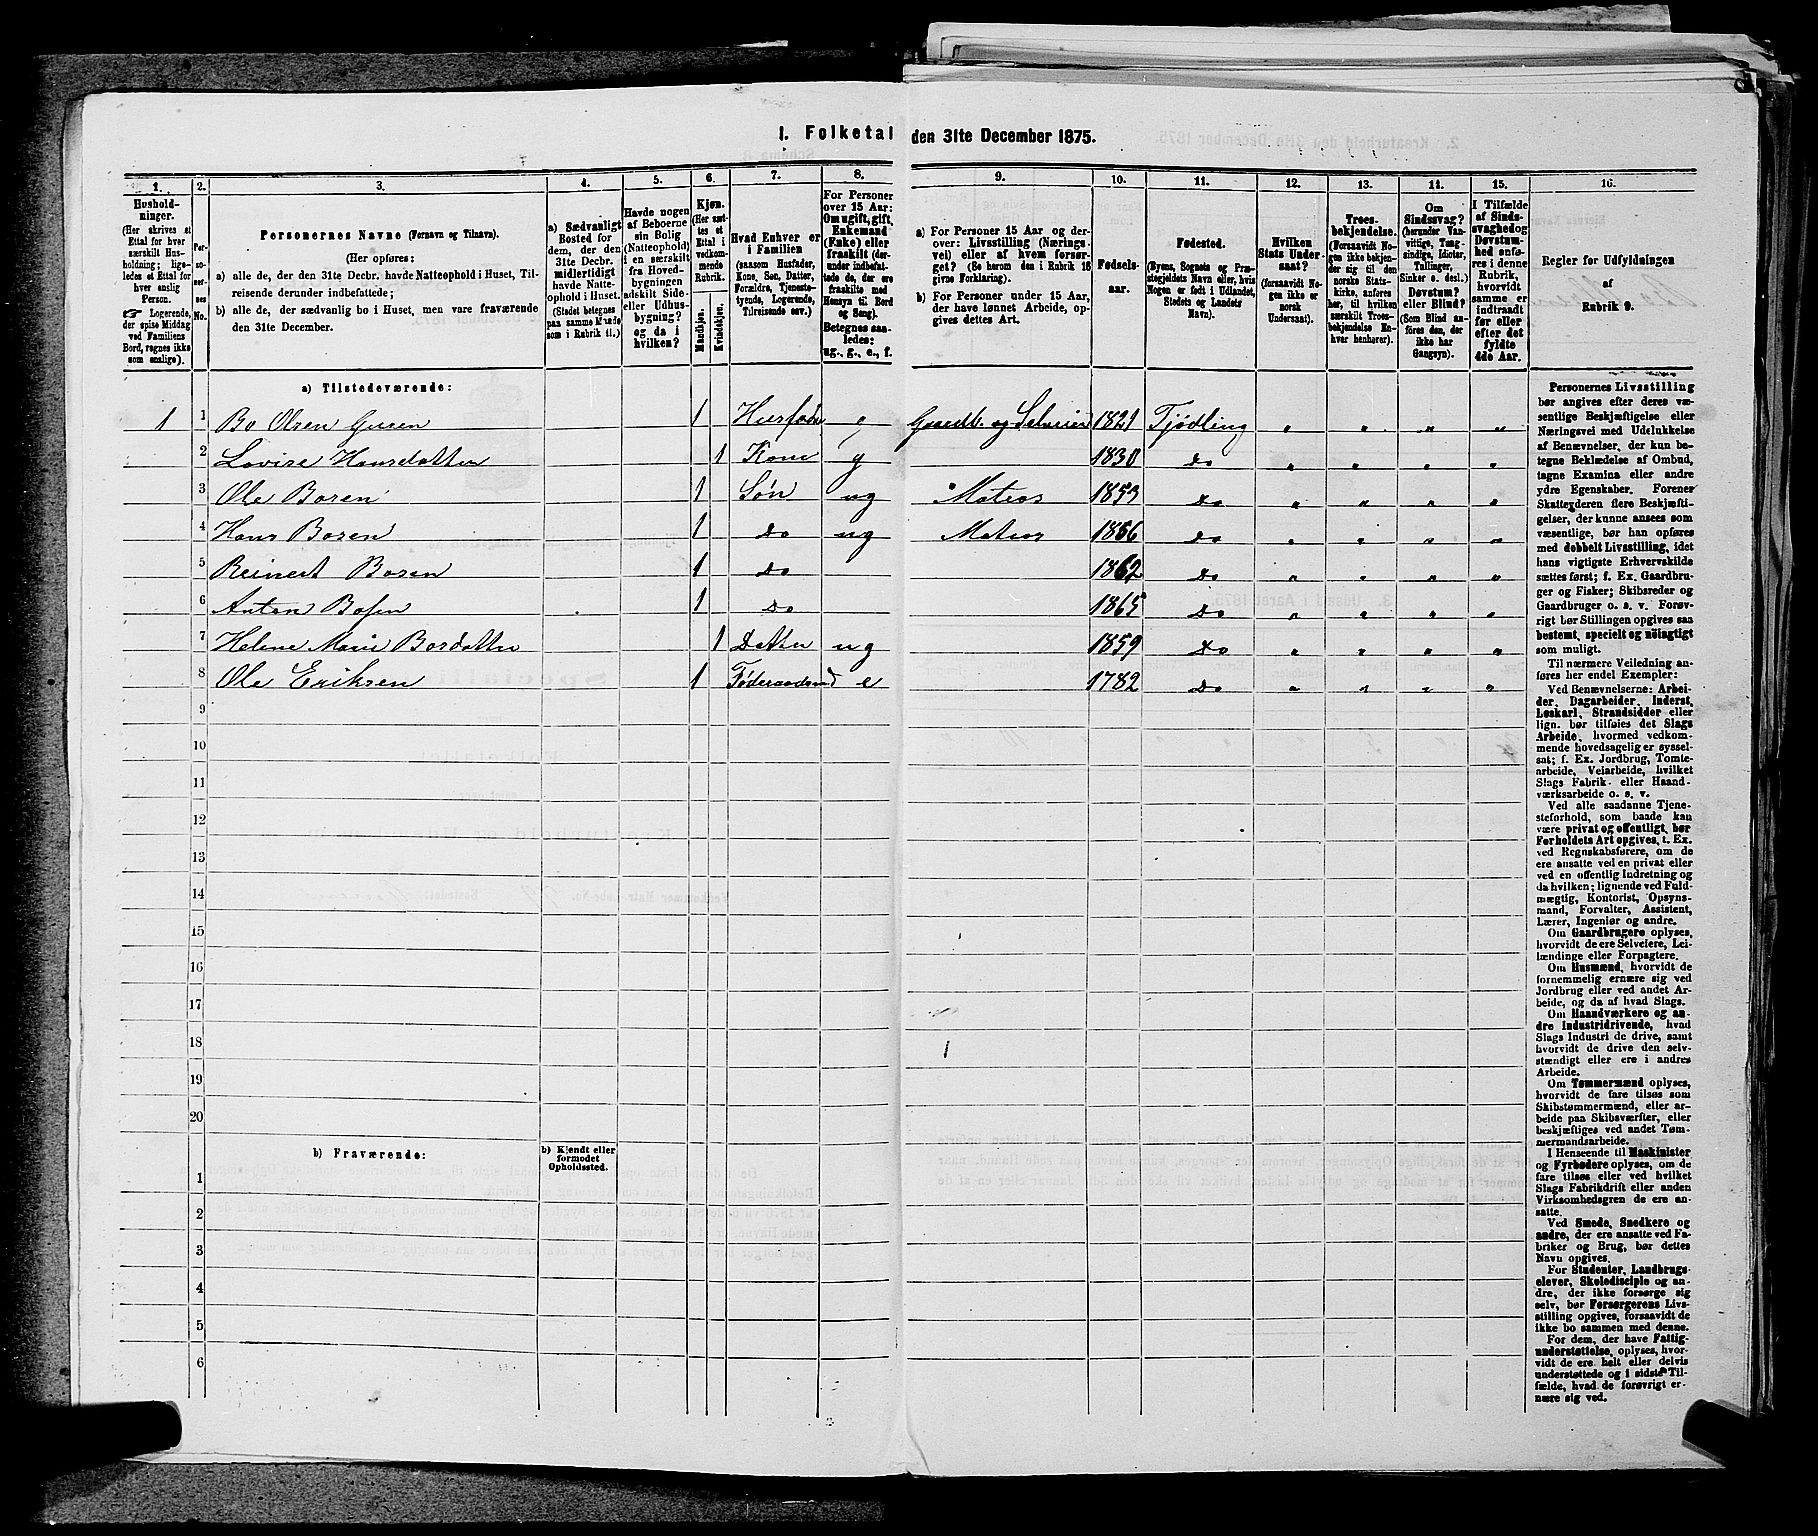 I. Folketal den 31te December 1875.
1. 2. 3. 4. 5. 6. 7. 8. 9. 10. 11. 12. 13. 14. 15. 16.
Husholdninger.
(Her skrives et
Ettal for hver
særskilt Husholdning;
ligeledes et Ettal for
hver enslig
Person.
☞ Logerende,
der spise Middag
ved Familiens
Bord, regnes ikke
som enslige).
Personernes No.
Personernes Navne (Fornavn og Tilnavn).
(Her opføres:
a) alle de, der den 31te Decbr. havde Natteophold i Huset, Tilreisende derunder indbefattede;
b) alle de, der sædvanlig bo i Huset, men vare fraværende
den 31te December.
a) Sædvanligt
Bosted for
dem, der den
31te Decbr.
midlertidigt
havde Natteophold i Huset.
(Stedet betegnes
paa samme Maade
som i Rubrik 11.)
Havde nogen
af Beboerne
sin Bolig
(Natteophold)
i en særskilt
fra Hovedbygningen
adskilt Side-
eller Udhusbygning?
og da i
hvilken?
Kjøn.
(Her sættes et
Ettal i
vedkommende
Rubrik.
Mandkjøn. Kvindekjøn.
Hvad Enhver er
i Familien
(saasom Husfader,
Kone, Søn, Datter,
Forældre, Tjenestetyende, Logerende,
Tilreisende osv.)
For Personer
over 15 Aar:
Om ugift, gift,
Enkemand
(Enke) eller
fraskilt (derunder indbefattede de, der ere
fraskilte med
Hensyn til Bord
og Seng).
Betegnes saaledes:
ug., g., e., f.
a) For Personer 15 Aar og derover: Livsstilling (Næringsvei) eller af hvem forsørget? (Se herom den i Rubrik 16
givne Forklaring).
b) For Personer under 15 Aar,
der have lønnet Arbeide, opgives dettes Art.
Fødselsaar.
Fødested.
(Byens, Sognets og Præstegjeldets Navn eller, hvis
Nogen er født i Udlandet,
Stedets og Landets
Navn).
Hvilken
Stats Undersaat?
(forsaavidt Nogen ikke er
norsk
Undersaat).
Troesbekjendelse.
(Forsaavidt Nogen ikke bekjender sig til den
norske Statskirke, anføres
her, til hvilken
særskilt Troesbekjendelse Enhver henhører).
Om
Sindssvag?
(herunder Vanvittige, Tungsindige, Idioter,
Tullinger,
Sinker o. desl.)
Døvstum?
eller Blind?
(Som Blind anføres den, der
ikke har
Gangsyn).
I Tilfælde
af Sindssvaghed og
Døvstumhed anføres i denne
Rubrik,
hvorvidt
samme er
indtraadt
før eller
efter det
fyldte
4de Aar.
Regler for Udfyldningen
af
Rubrik 9.
a) Tilstedeværende:
1 1 Bo Olsen Guren 1 Husfader g Gaardb. og Selveier 1821 Tjødling " " " "
2 Lovise Hansdatter 1 Kone g 1830 Do " " " "
3 Ole Bosen 1 Søn ug Matros 1853 Do " " " "
4 Hans Bosen 1 Do ug Matros 1856 Do " " " "
5 Reinert Bosen 1 Do 1862 Do " " " "
6 Anton Bosen 1 Do 1865 Do " " " "
7 Helene Marie Bosdatter 1 Datter ug 1859 Do " " " "
8 Ole Eriksen 1 Føderaadsmd e 1782 Do " " " "
9
10
11
12
13
14
15
16
17
18
19
20
b) Fraværende:
b) Kjendt eller
formodet
Opholdssted.
1
2
3
4
5
6
Personernes Livsstilling
bør angives efter deres væsentlige Beskjæftigelse eller
Næringsvei med Udelukkelse
af Benævnelser, der kun betegne Beklædelse af Ombud,
tagne Examina eller andre
ydre Egenskaber. Forener
Skatteyderen flere Beskjæftigelser, der kunne ansees som
væsentlige, bør han opføres
med dobbelt Livsstilling, idet
hans vigtigste Erhvervskilde
sættes først; f. Ex. Gaardbruger og Fisker; Skibsreder og
Gaardbruger o. s. v. Forøvrigt bør Stillingen opgives saa
bestemt, specielt og nöiagtigt
som muligt.
Til nærmere Veiledning anføres her endel Exempler:
Ved Benævnelserne: Arbeider, Dagarbeider, Inderst,
Løskarl, Strandsidder eller
lign. bør tilføies det Slags
Arbeide, hvormed vedkommende hovedsagelig er sysselsat; f. Ex. Jordbrug, Tomtearbeide, Veiarbeide, hvilket
Slags Fabrik- eller Haandværksarbeide o. s. v.
Ved alle saadanne Tjenesteforhold, som baade kan
være privat og offentligt, bør
Forholdets Art opgives, t. Ex.
ved Regnskabsførere, om de
ere ansatte ved en privat eller
ved en offentlig Indretning og
da hvilken; lignende ved Fuldmægtig, Kontorist, Opsynsmand, Forvalter, Assistent,
Lærer, Ingeniør og andre.
Om Gaardbrugere oplyses,
hvorvidt de ere Selveiere, Leilændinge eller Forpagtere.
Om Husmænd, hvorvidt de
fornemmelig ernære sig ved
Jordbrug eller ved andet Arbeide, og da af hvad Slags.
Om Haandværkere og andre Industridrivende, hvad
Slags Industri de drive, samt
hvorvidt de drive den selvstændigt eller ere i andres
Arbeide.
Om Tømmermænd oplyses,
hvorvidt de fare tilsøs som
Skibstømmermænd, eller arbeide paa Skibsværfter, eller
beskjæftiges ved andet Tømmermandsarbeide.
I Henseende til Maskinister
og Fyrbødere oplyses, om de
fare tilsøs eller ved hvilket
Slags Fabrikdrift eller anden
Virksomhedsgren de ere ansatte.
Ved Smede, Snedkere og
andre, der ere ansatte ved Fabriker og Brug, bør dettes
Navn opgives.
For Studenter, Landbrugselever, Skoledisciple og andre, der ikke forsørge sig
selv, bør Forsørgerens Livsstilling opgives, forsaavidt de
ikke bo sammen med denne.
For dem, der have Fattigunderstøttelse, oplyses, hvorvidt de ere helt eller delvis
understøttede og i sidste Tilfælde, hvad de forøvrigt ernære sig ved.